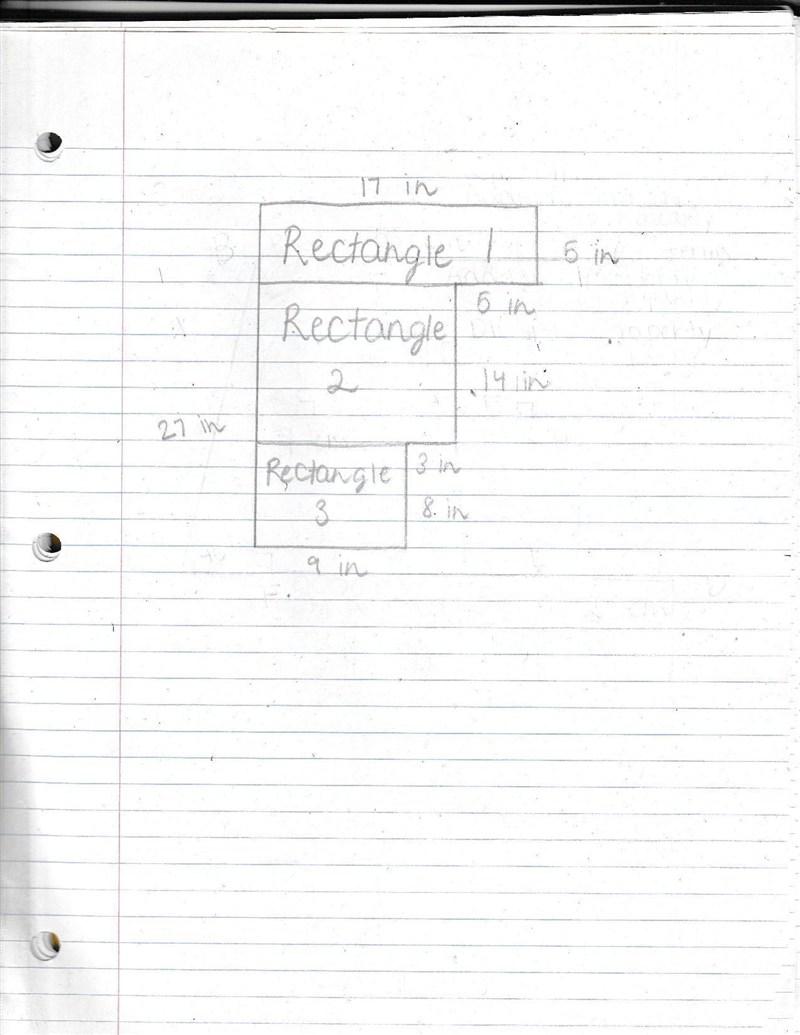 17 in
Rectangle 1 5 in
5 in
Rectangle
2 14 in
27 in
Rectangle 3 in
3 8 in
9 in